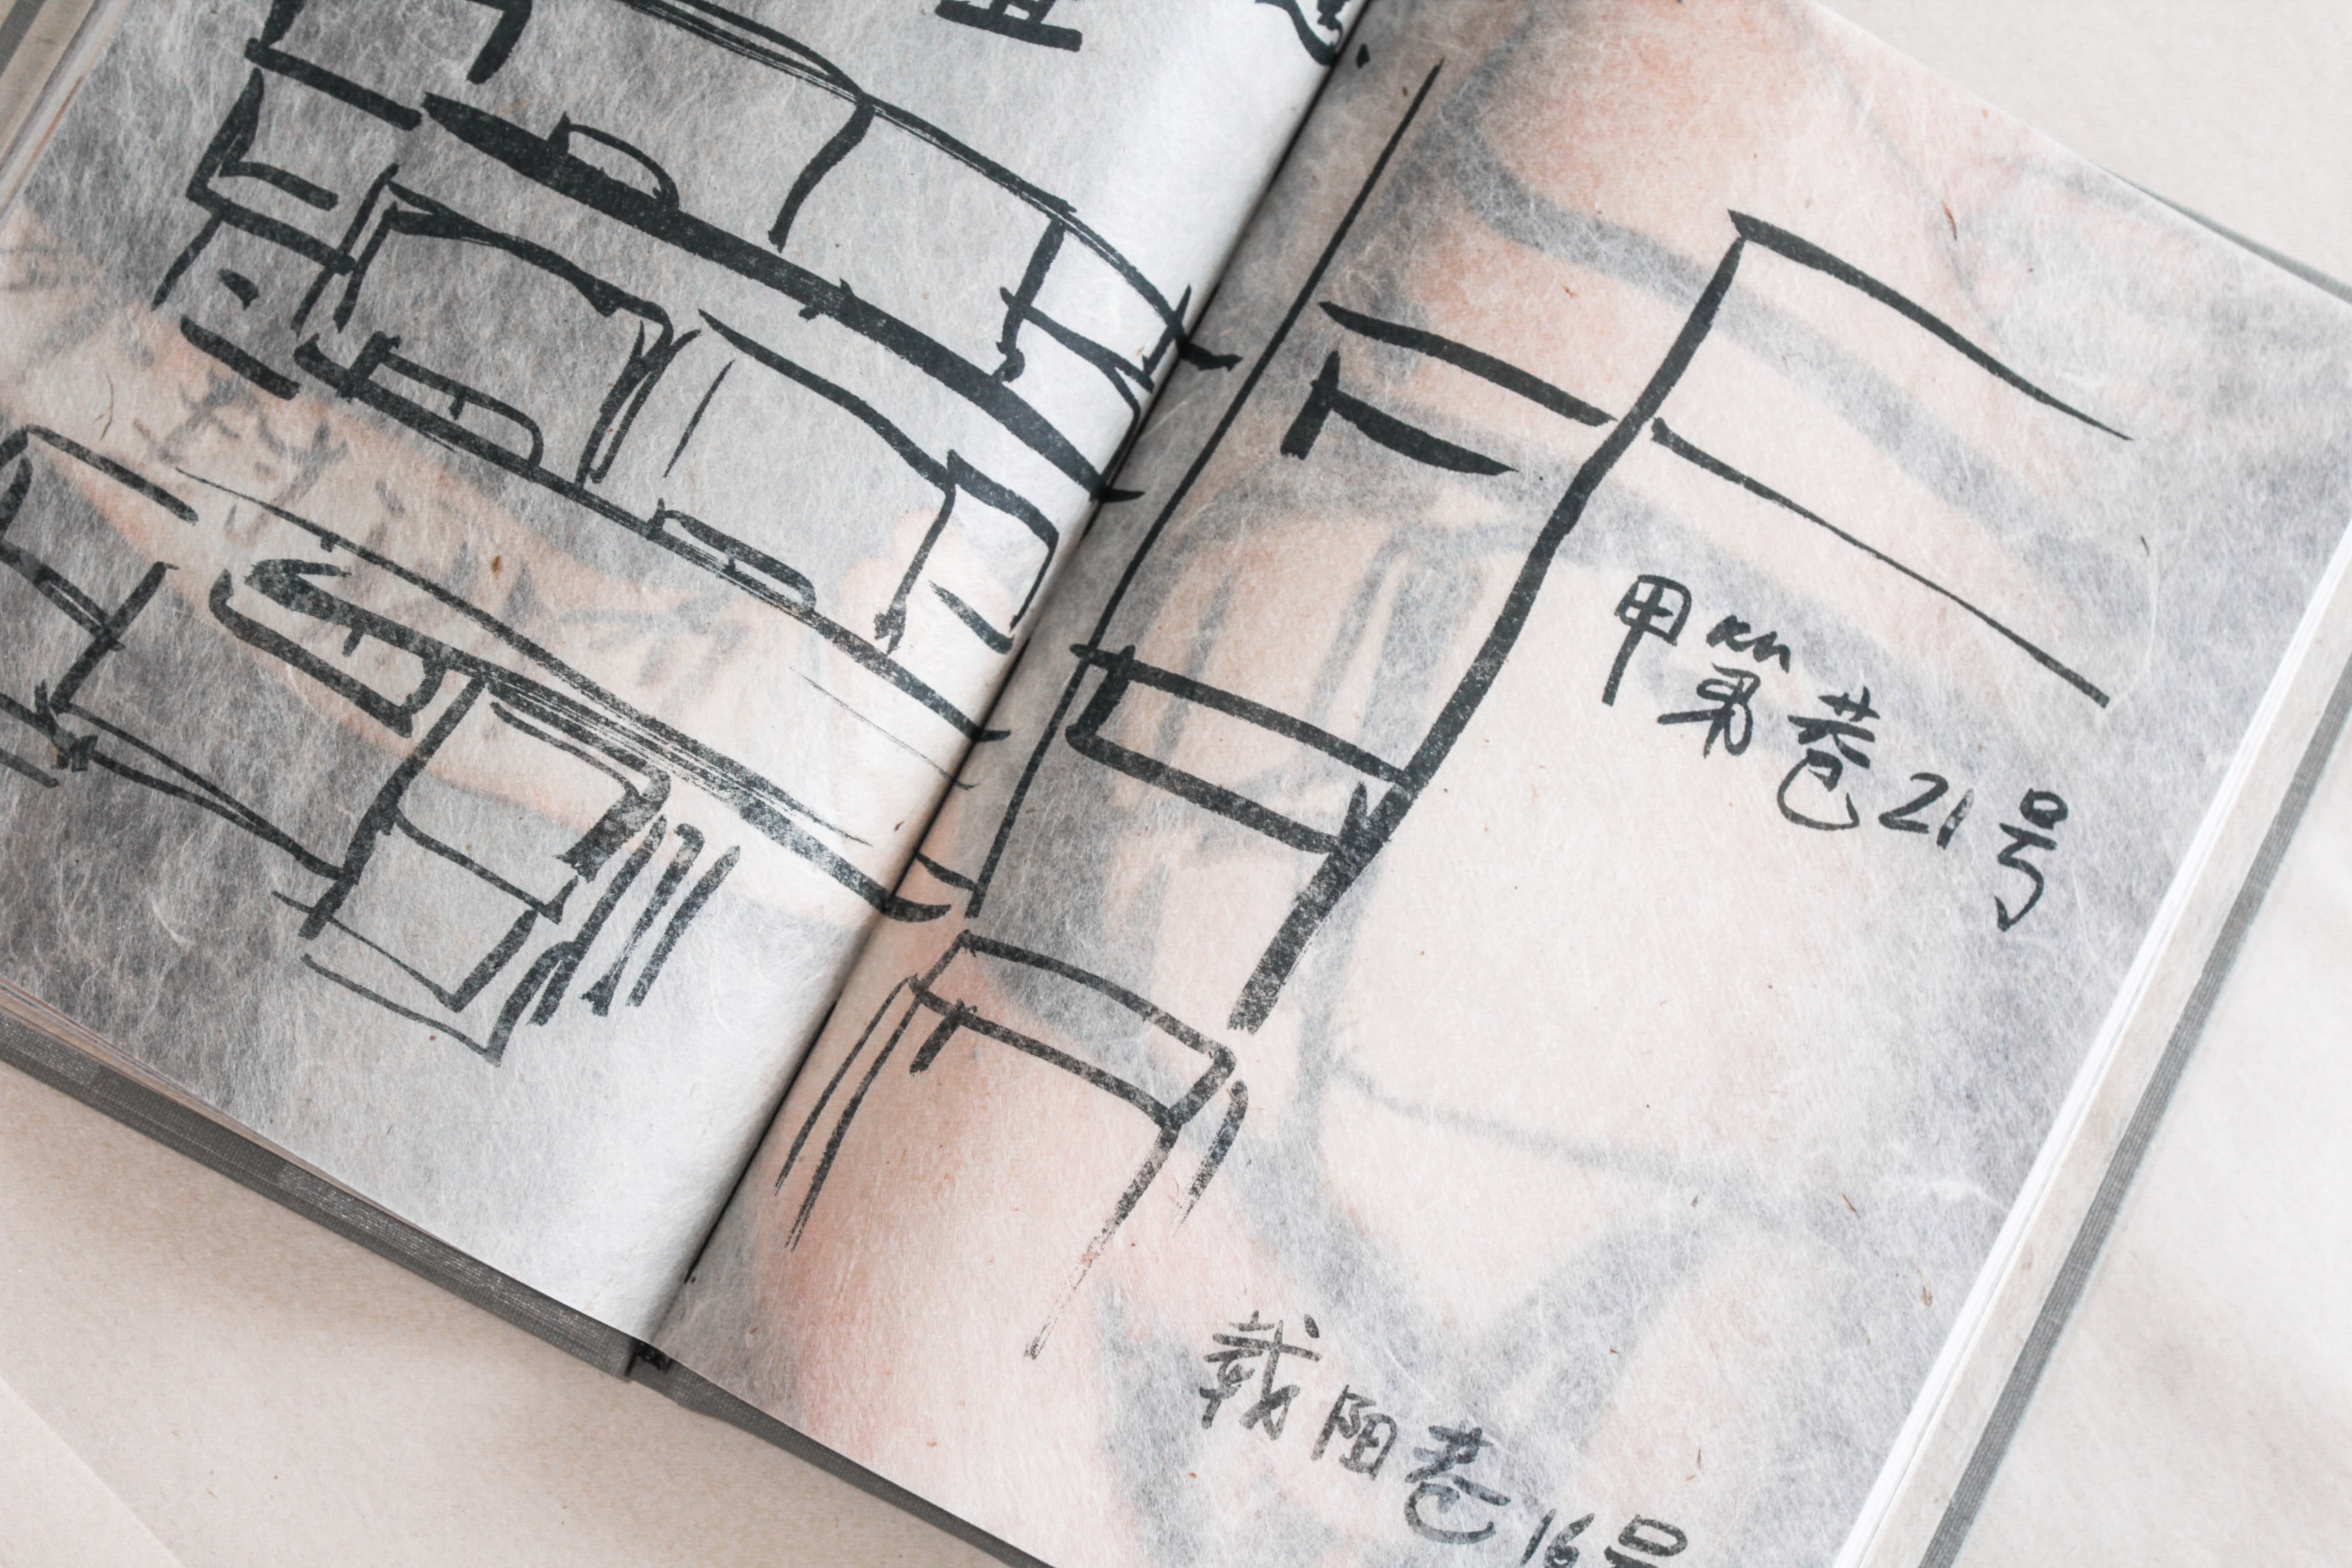 甲第巷21号
载阳巷16号